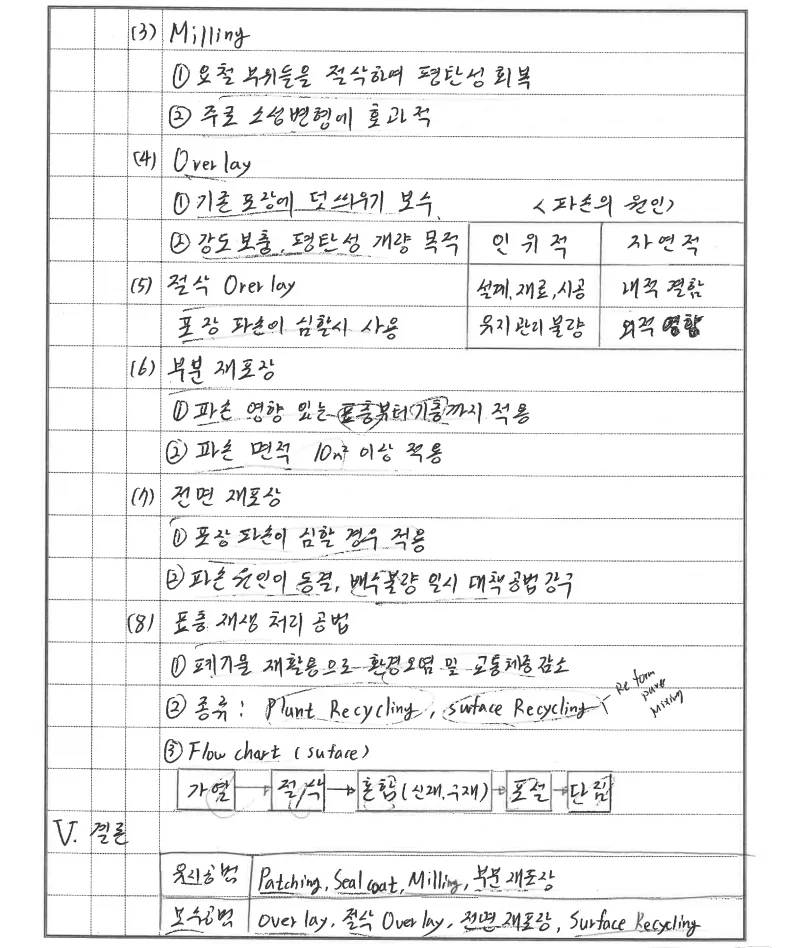 (3) Milling
① 요철 부위들을 절삭하여 평탄성 회복
② 주로 소성변형에 효과적
(4) Overlay
① 기존 포장에 덧씌우기 보수
② 강도보충, 평탄성 개량 목적
<파손의 원인>
인위적 자연적
설계, 재료, 시공 내적 결함
유지관리불량 외적 영향
(5) 절삭 Overlay
포장 파손이 심할시 사용
(6) 부분 재포장
① 파손 영향 있는 표층부터 기층까지 적용
② 파손 면적 10m² 이상 적용
(7) 전면 재포장
① 포장 파손이 심할 경우 적용
② 파손원인이 동결, 배수불량 일시 대책공법강구
(8) 표층 재생 처리 공법
① 폐기물 재활용으로 환경오염 및 교통체증 감소
② 종류 : Plant Recycling, Surface Recycling
Re form
paver
Mixing
③ Flow chart (suface)
가열 → 절삭 → 혼합(신재, 구재) → 포설 → 단짐
V. 결론
유지공법 Patching, Seal coat, Milling, 부분재포장
보수공법 overlay, 절삭 Overlay, 전면 재포장, Surface Recycling